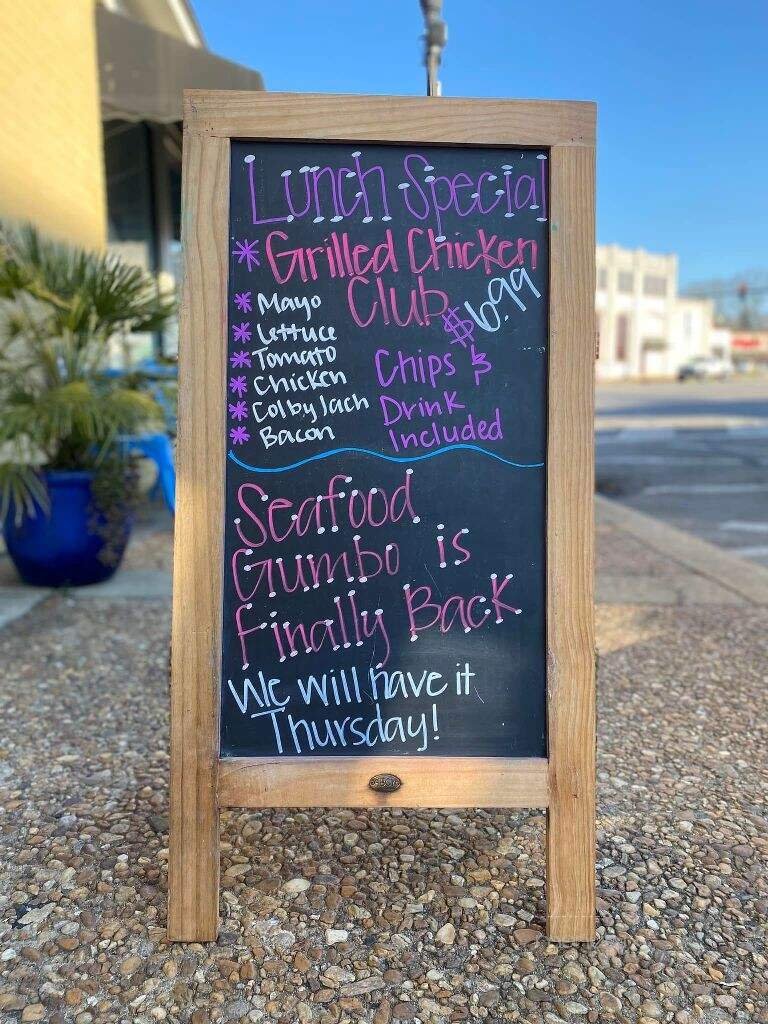 Lunch Special
* Grilled Chicken
Club $6.99
* Mayo
* Lettuce
* Tomato
* Chicken
* Colby Jach
* Bacon
Chips &
Drink
Included
Seafood
Gumbo is
Finally Back
We will have it
Thursday!